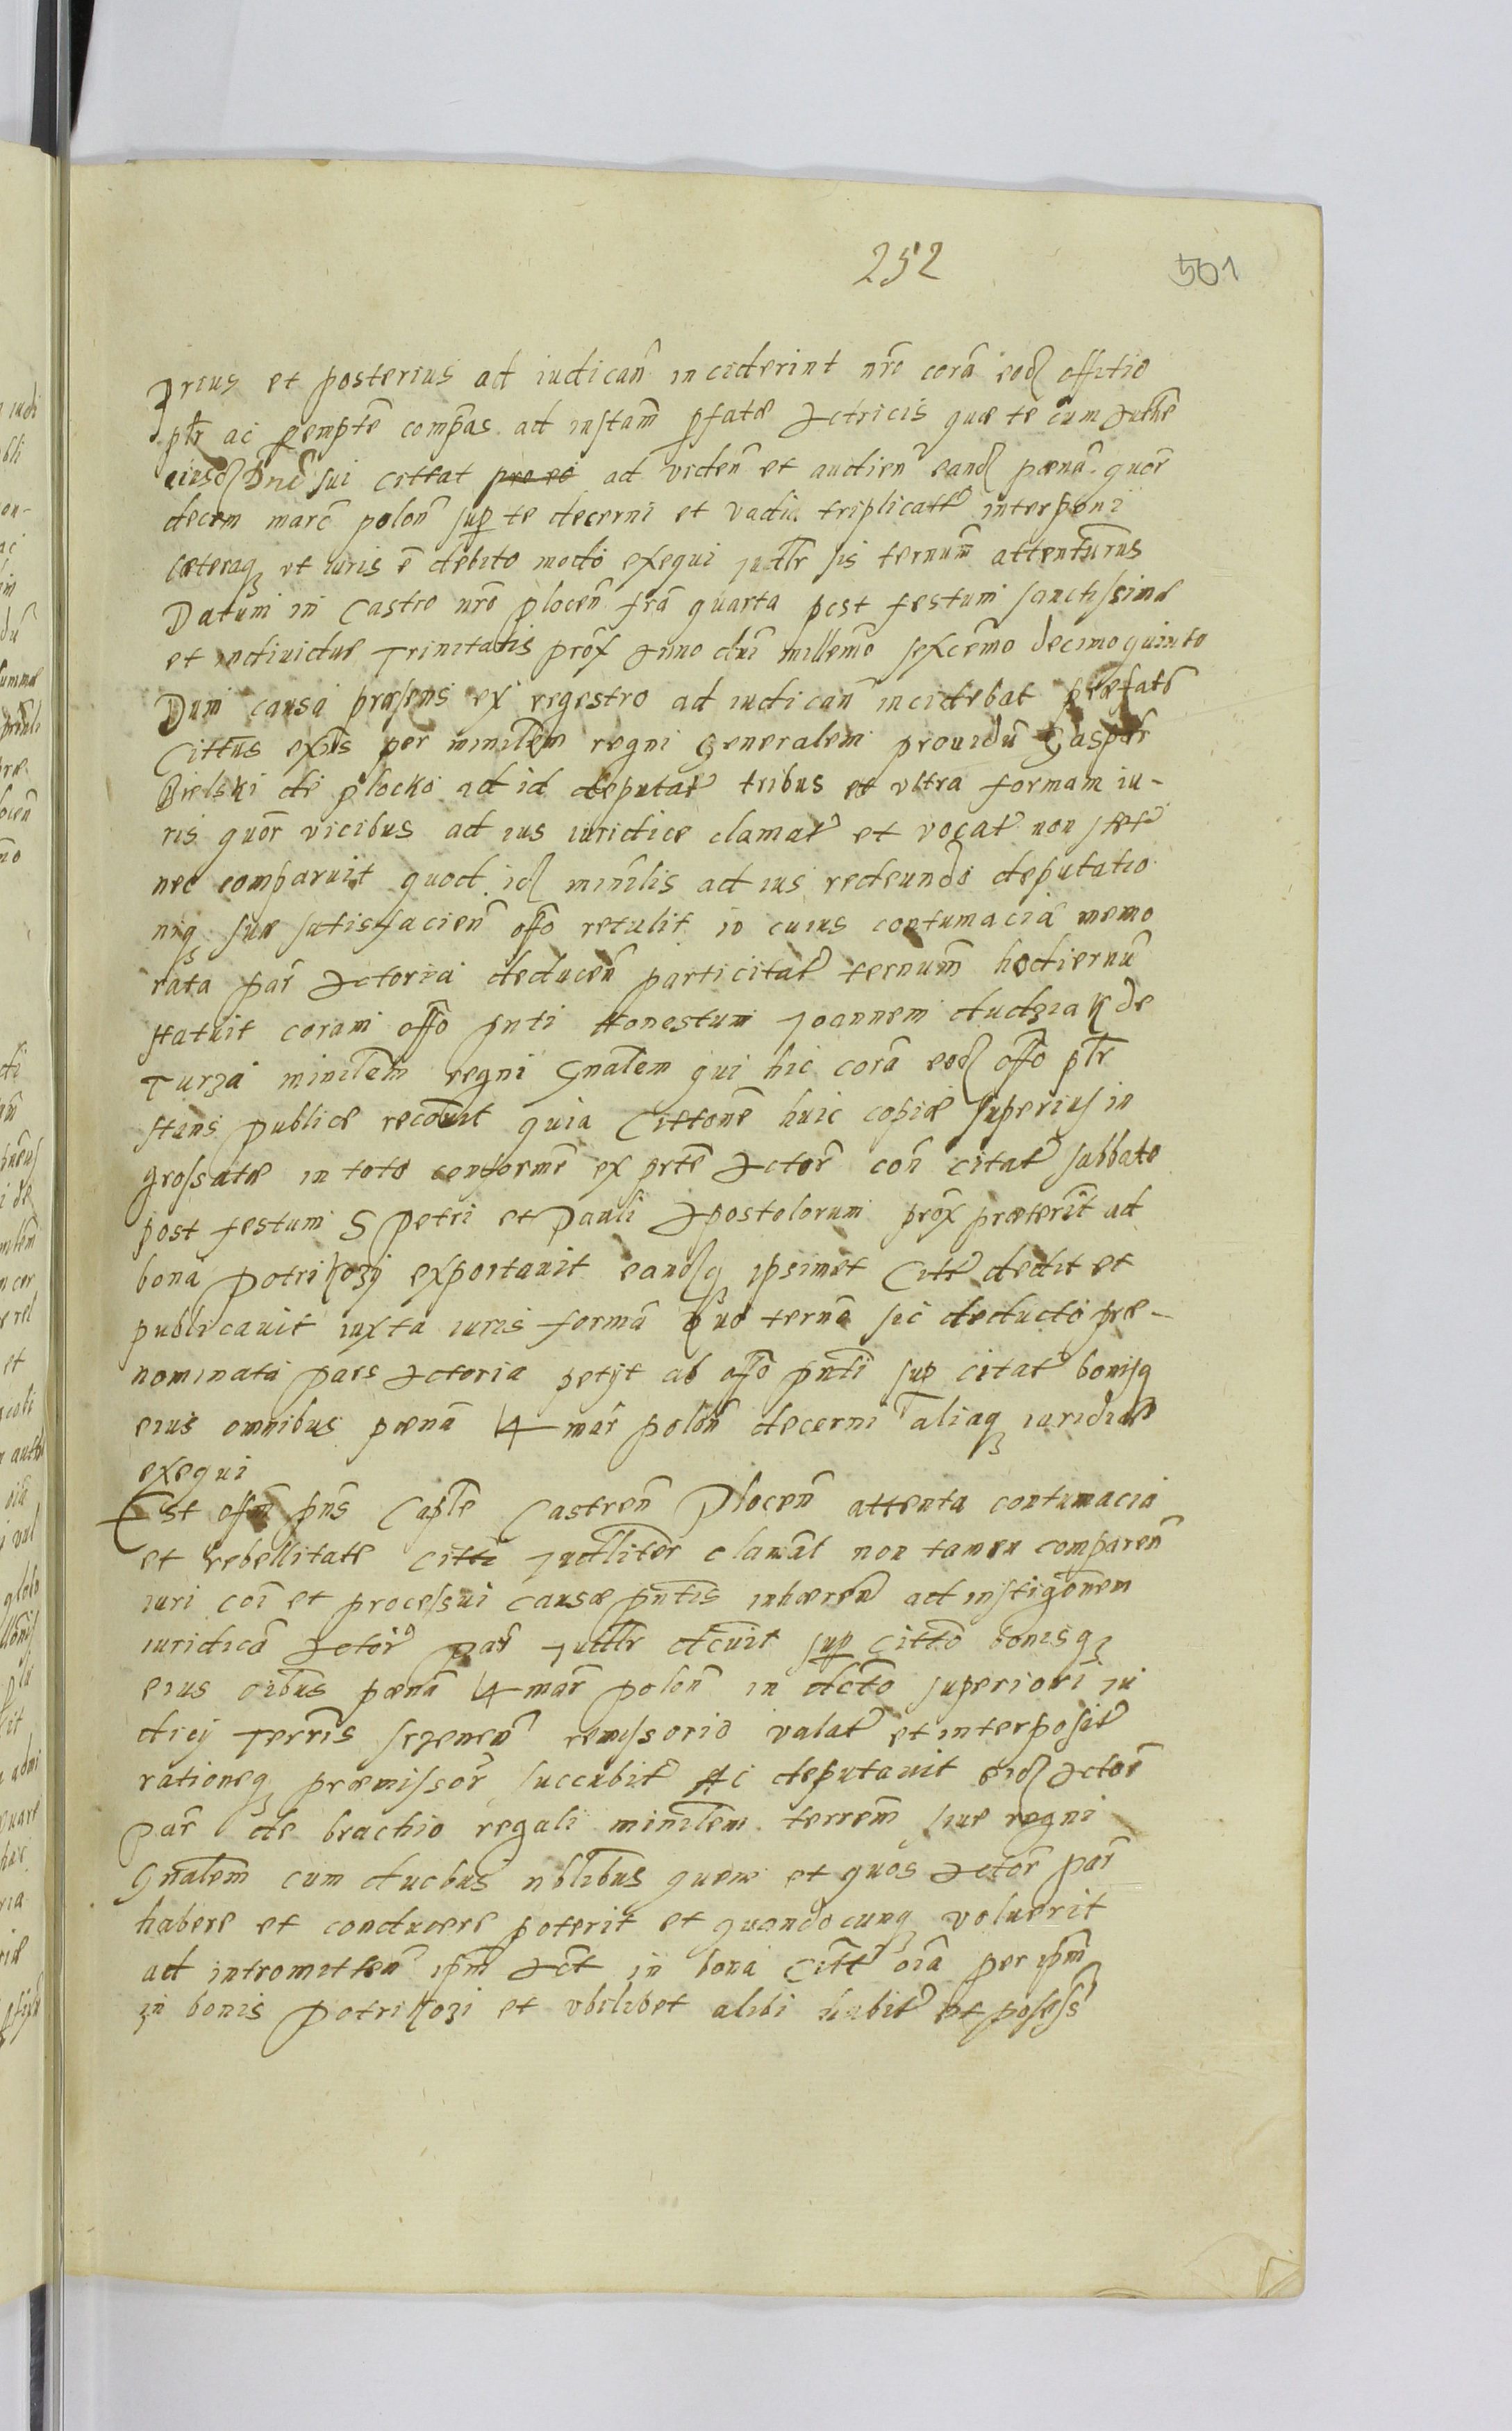 252
501
prius et posterius ad iudican̄ inciderint nr̄o corā eod offitio
pt̄r ac pempt̄e compas ad instam̄ pfatæ Actricis quæ te cum
eiusd Dn̄i sui cittat ad viden̄ et audien̄ eand pœnā quor̄
decem marc̄ polon̄ sup te decerni et vadia triplicatt̄ interponi
cæteraq ut iuris ē debito modo exequi sis ternum̄ attenturus
Datum in Castro nr̄o plocen̄ fr̄a quarta post festum sanctissimæ
et indiuiduæ Trinitatis prox̄ Anno dni millem̄o sexcem̄o decimoquinto
Dum causa præsens ex regestro ad iudican̄ incidebat præfat̄
Citt̄us exn̄s per minil̄em regni generalem prouidū Gaspar̄
Bielski de plocko ad id deputat̄ tribus et ultra formam iu-
ris quor̄ vicibus ad ius iuridice clamat̄ et vocat̄ non stet̄
nec comparuit quod id minil̄is ad ius redeundo deputatio
niq suæ satisfacien̄ off̄o retulit in cuius contumaciā memo
rata par̄ Actoria deducen̄ particitat̄ ternum̄ hodiernū
statuit coram off̄o pn̄ti Honestum Joannem dudziak de
Turza minil̄em regni Gn̄alem qui hic corā eod off̄o pt̄r
stans publice recōuit quia Cittonē huic copiæ superius in
grossatæ in toto conformē ex pr̄te Actor̄ con̄ citat̄ sabbato
post festum S Petri et Pauli Apostolorum prox̄ præterit̄ ad
bona Potrikozy exportauit eandq ipsimet Citt̄ dedit et
publicauit iuxta iuris formā quo ternō sic deducto præ-
nominata pars Actoria petyt ab off̄o pn̄ti sup citat̄ bonisq
eius omnibus pœnā 14 mar̄ polon̄ decerni aliaq iuridice
exequi
Et offm̄ pn̄s Capl̄e Castren̄ Plocen̄ attenta contumacia
et rebellitate citti Judl̄iter clamāt non tamen comparen̄
iuri cōi et processui causæ pn̄tis inhæren̄ ad instigōnem
iuridicā Actor̄ par̄ Judl̄r dcūit sup citt̄o bonisq
eius oībus pœnā 14 mar̄ polon̄ in dct̄o superiori iu
dicij Terr̄is remissorio valat̄ et interposit̄
rationeq præmissor̄ succubit̄ Ac deputauit eid Actor̄
par̄ de brachio regali minil̄em terrem̄ siue regni
Gn̄alem cum duobus nb̄libus quem et quos Actor̄ par̄
habere et conducere poterit et quandocunq voluerit
ad intromitten̄ ipm̄ Act̄ in bona Citt̄ oīa per ipm̄
in bonis Potrikozi et ubilibet alibi habit̄ et possess̄